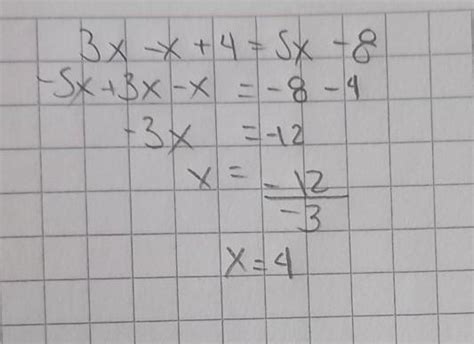 3x - x + 4 = 5x - 8
-5x + 3x - x = -8 - 4
-3x = -12
x = -12/-3
x = 4